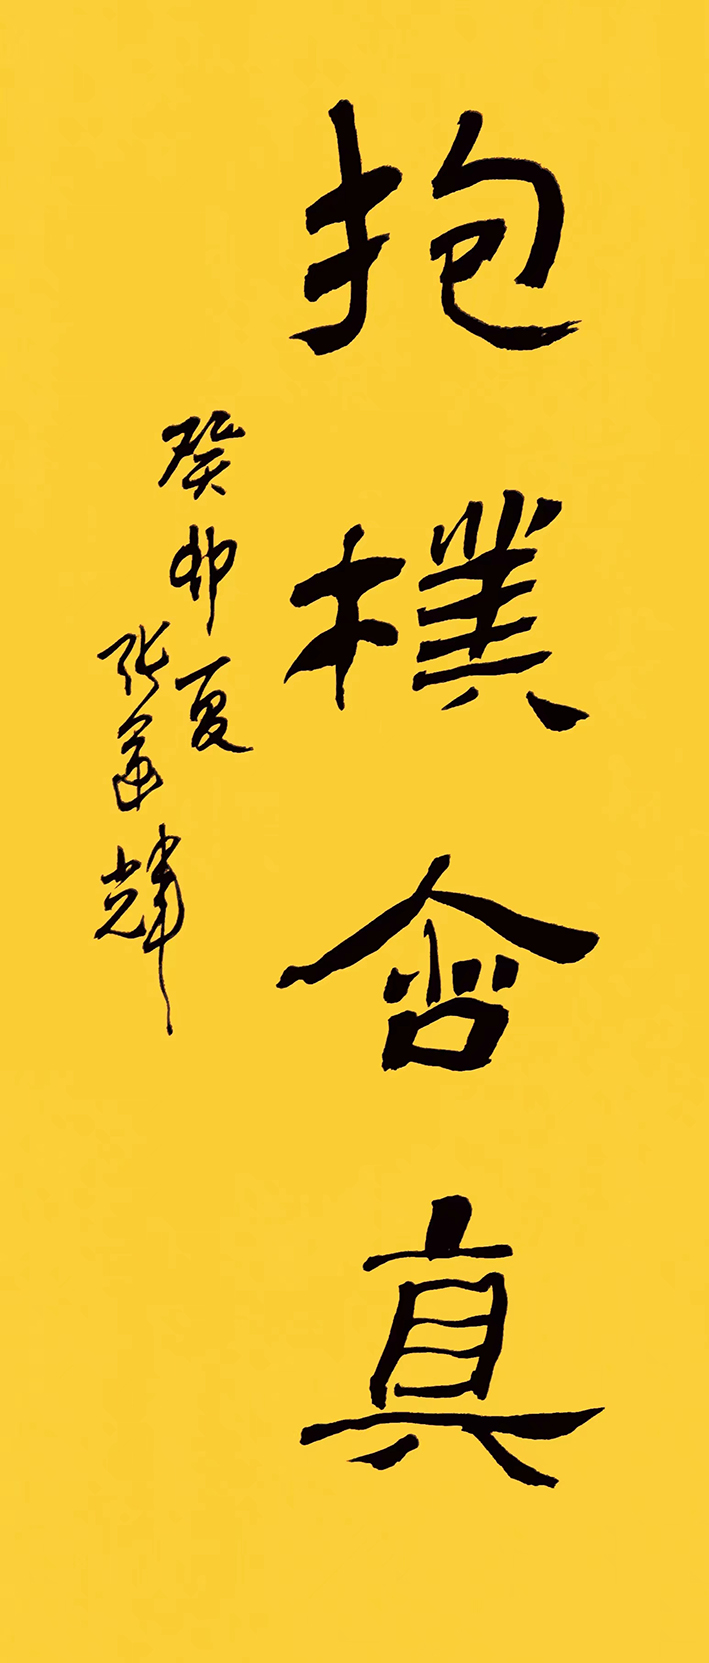 抱樸含真
癸卯夏
张富輝